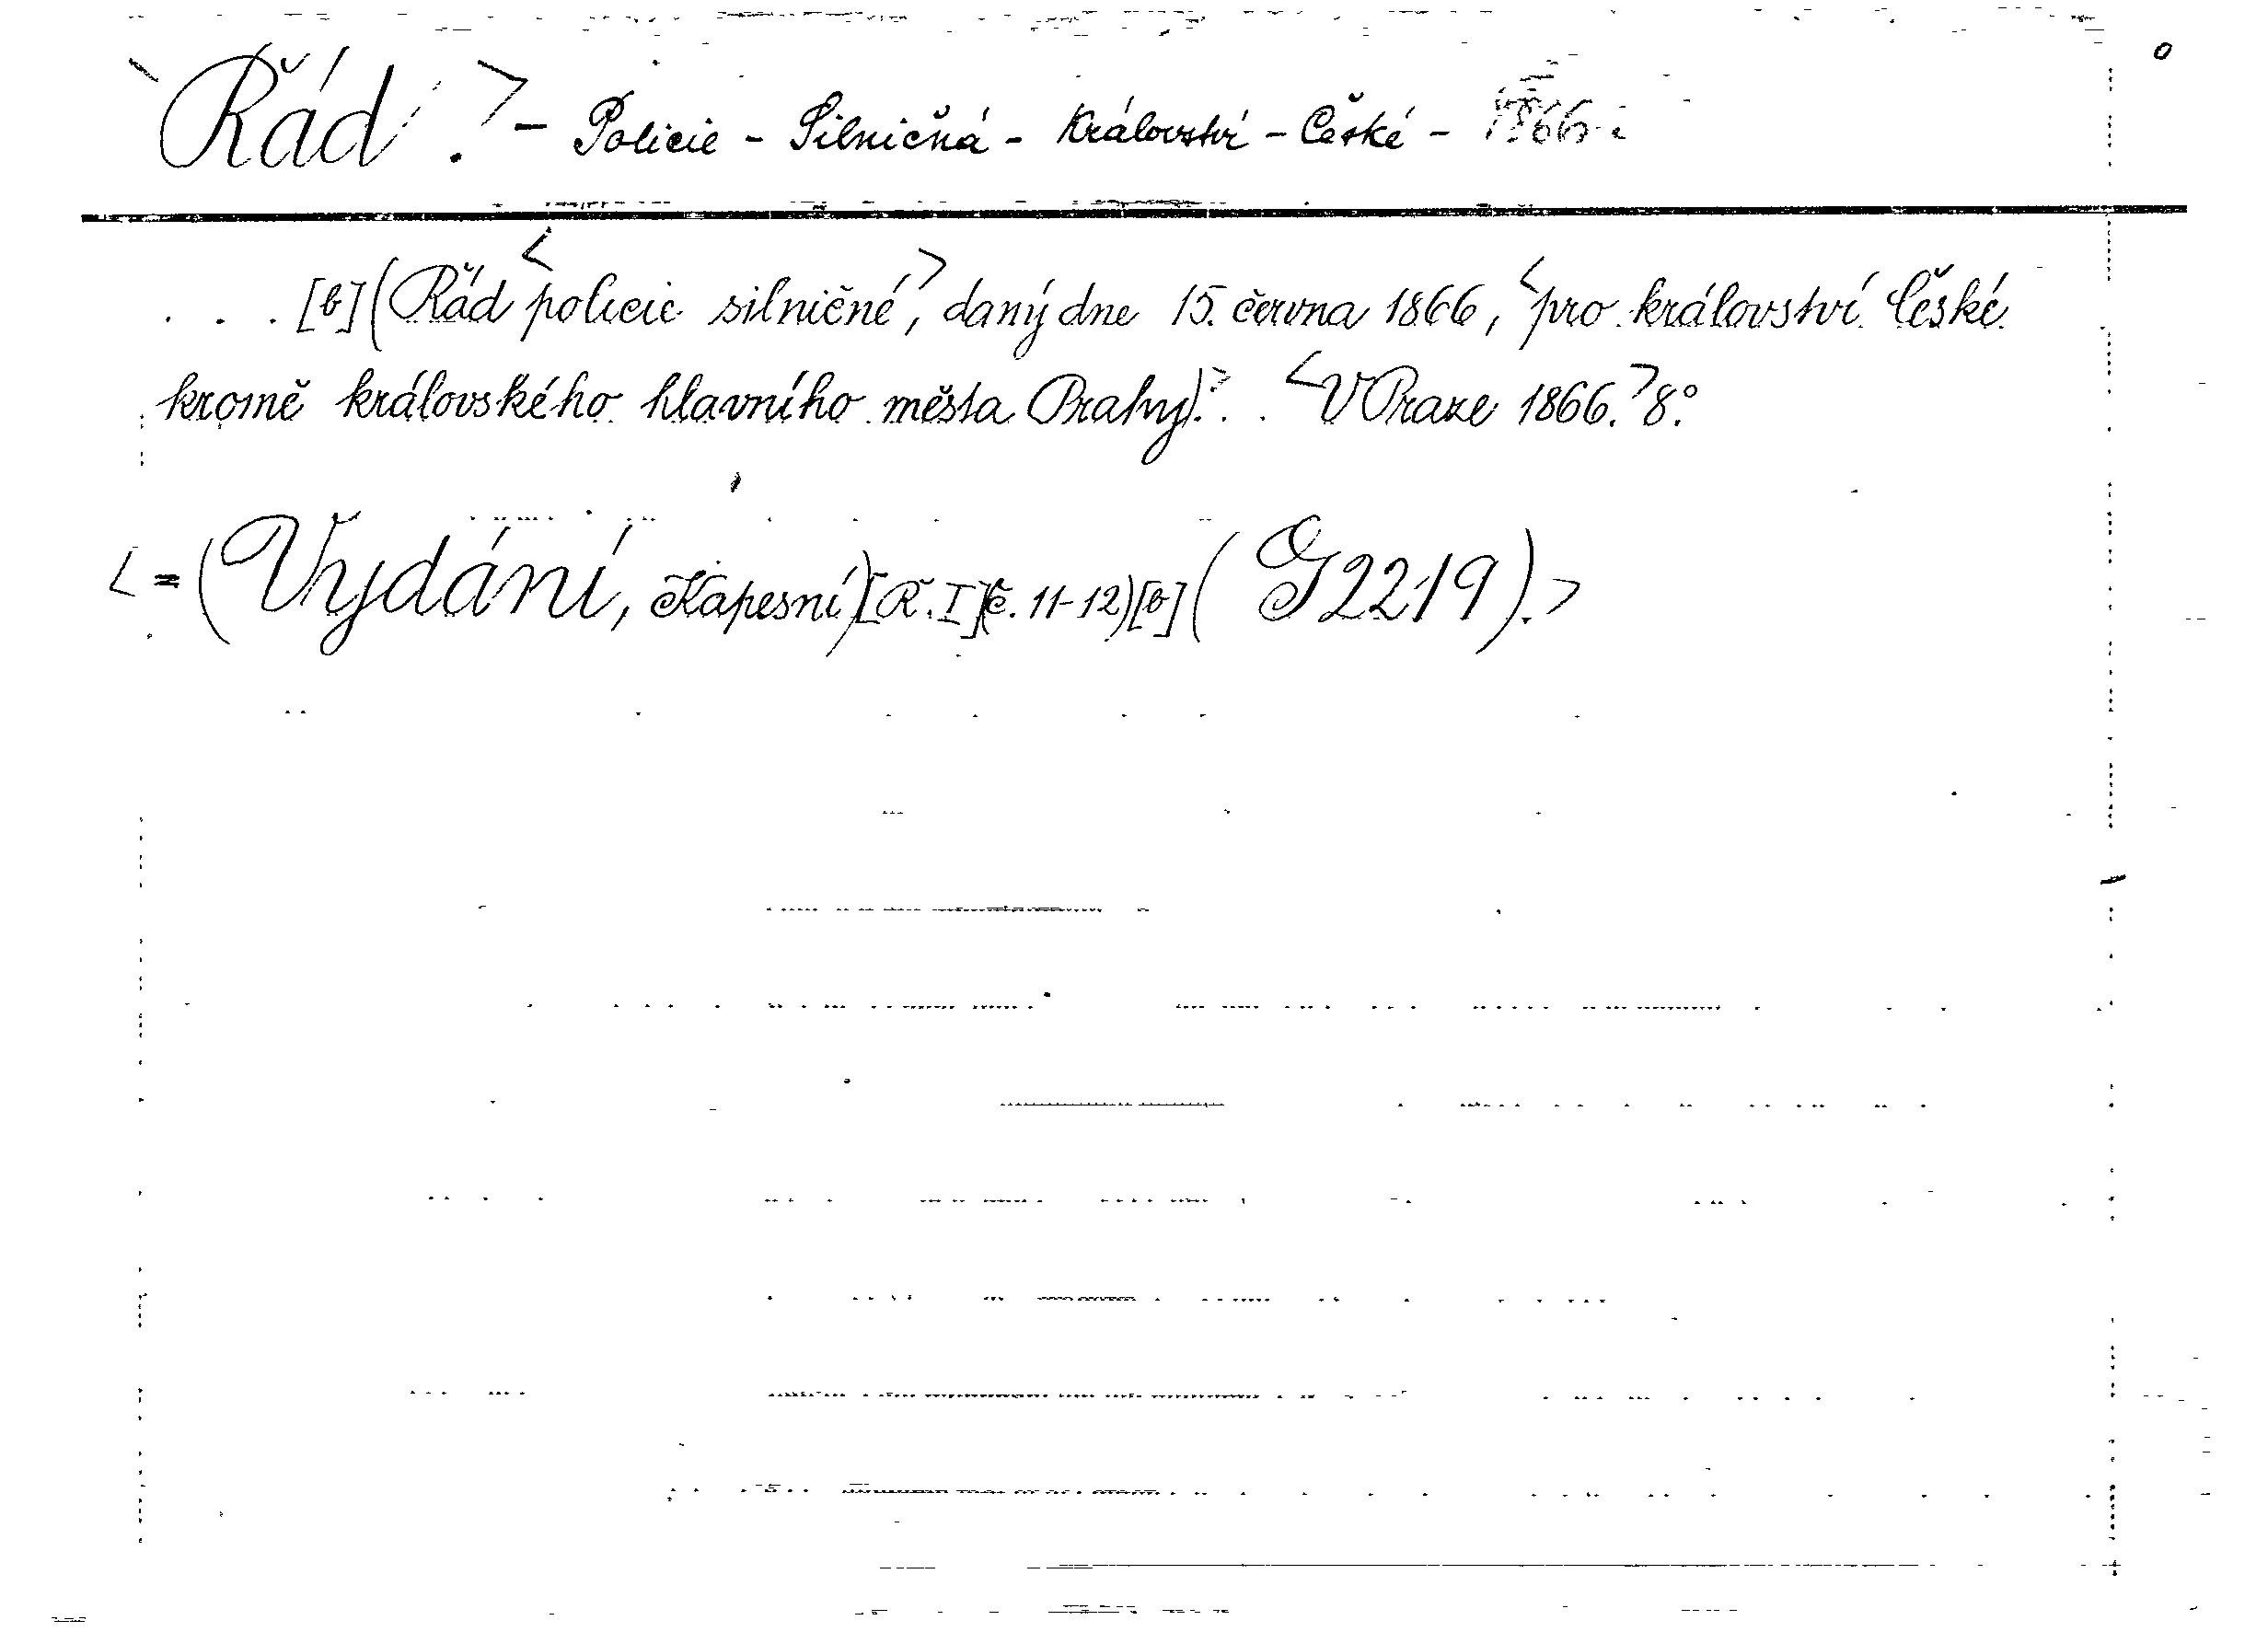 Řád. > - Policie - Silničná - Království - České - 1866
. . . [b] (Řád < policie silničné, > daný dne 15. června 1866, < pro království České
kromě královského hlavního města Prahy). > . . < V Praze 1866. > 8.°
< = (Vydání, Kapesní) [Ř. I] (č. 11-12) [b] (G 2219). >